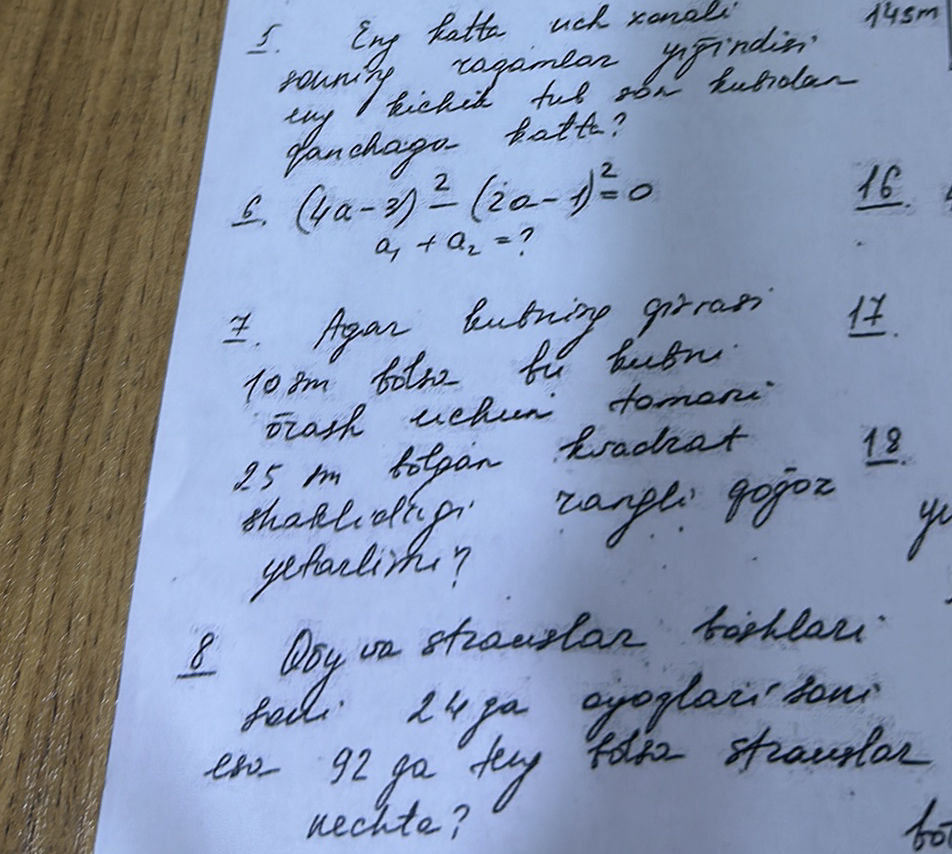 5. Eng katta uch xonali
sonning raqamlar yiğindisi
eng kichik tub son kubidan
qanchaga katta?
6. (4a-3)² - (2a-1)² = 0
a₁ + a₂ = ?
7. Agar kubning qirrasi
10 sm bōlsa bu kubni
ōrash uchun tomoni
25 sm bōlgan kvadrat
shaklidagi rangli qoğoz
yetarlimi?
8 Qōy va strauslar boshlari
soni 24 ga oyoqlari soni
esa 92 ga teng bōlsa strauslar
nechta?
14sm
16.
17.
18.